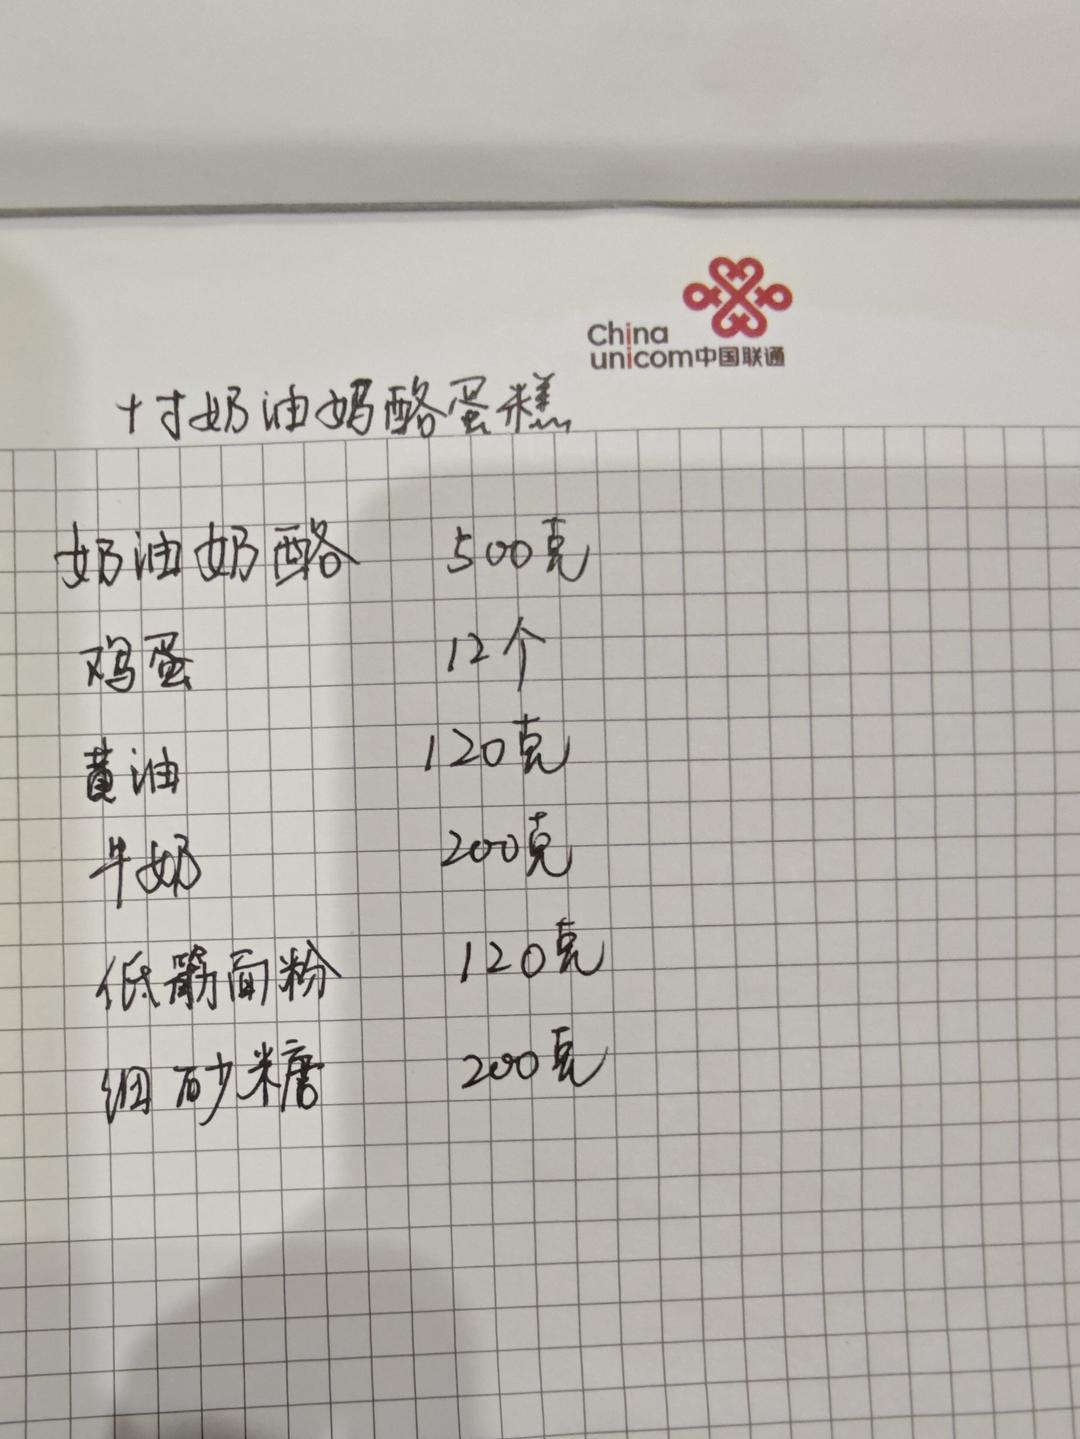 China
unicom中国联通
十寸奶油奶酪蛋糕
奶油奶酪 500克
鸡蛋 12个
黄油 120克
牛奶 200克
低筋面粉 120克
细砂糖 200克